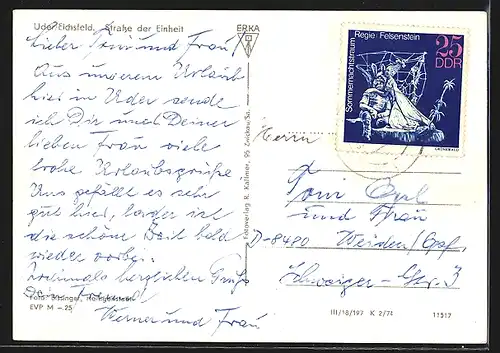 Uder/Eichsfeld. Straße der Einheit
ERKA
Lieber Toni und Frau
Aus unserem Urlaub
hier in Uder sende
ich Dir und Deiner
lieben Frau viele
frohe Urlaubsgrüße
Uns gefällt es sehr
gut hier, leider ist
die schöne Zeit bald
wieder vorbei.
Nochmals herzlichen Gruß
Dein Freund
Werner und Frau
Foto: Heiligenstadt
EVP M –.25
Fotoverlag R. Kallmer, 95 Zwickau/Sa.
Sommernachtstraum
Regie: Felsenstein
25
DDR
Herrn
Toni
und Frau
D-8480 Weiden/Opf.
Schweiger-Str. 3
III/18/197 K 2/74 11517